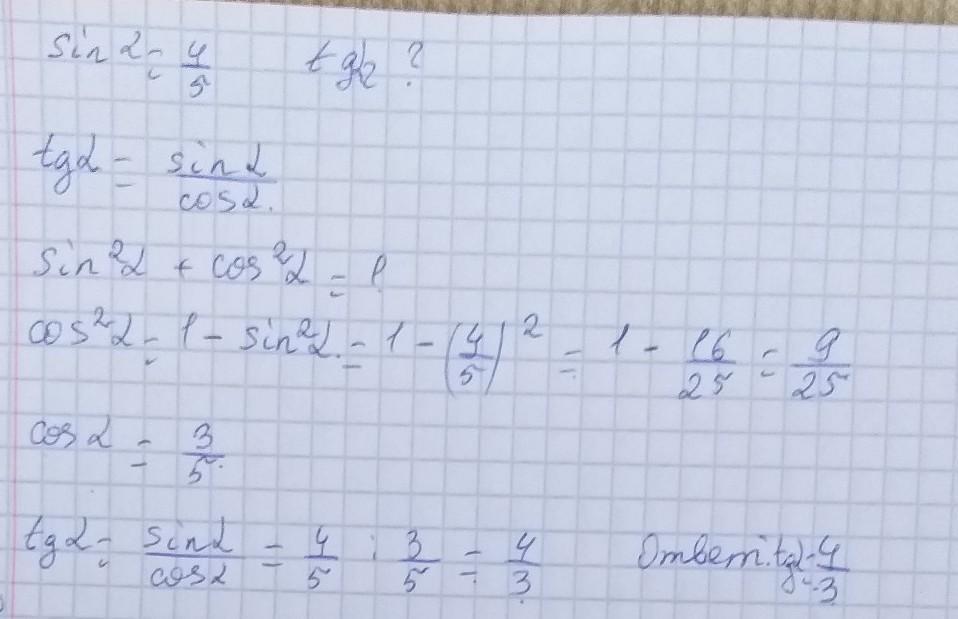 sin α = 4/5 tg α ?
tg α = sin α / cos α.
sin²α + cos²α = 1
cos²α = 1 - sin²α = 1 - (4/5)² = 1 - 16/25 = 9/25
cos α = 3/5.
tg α = sin α / cos α = 4/5 : 3/5 = 4/3 Ответ: tg α = 4/3